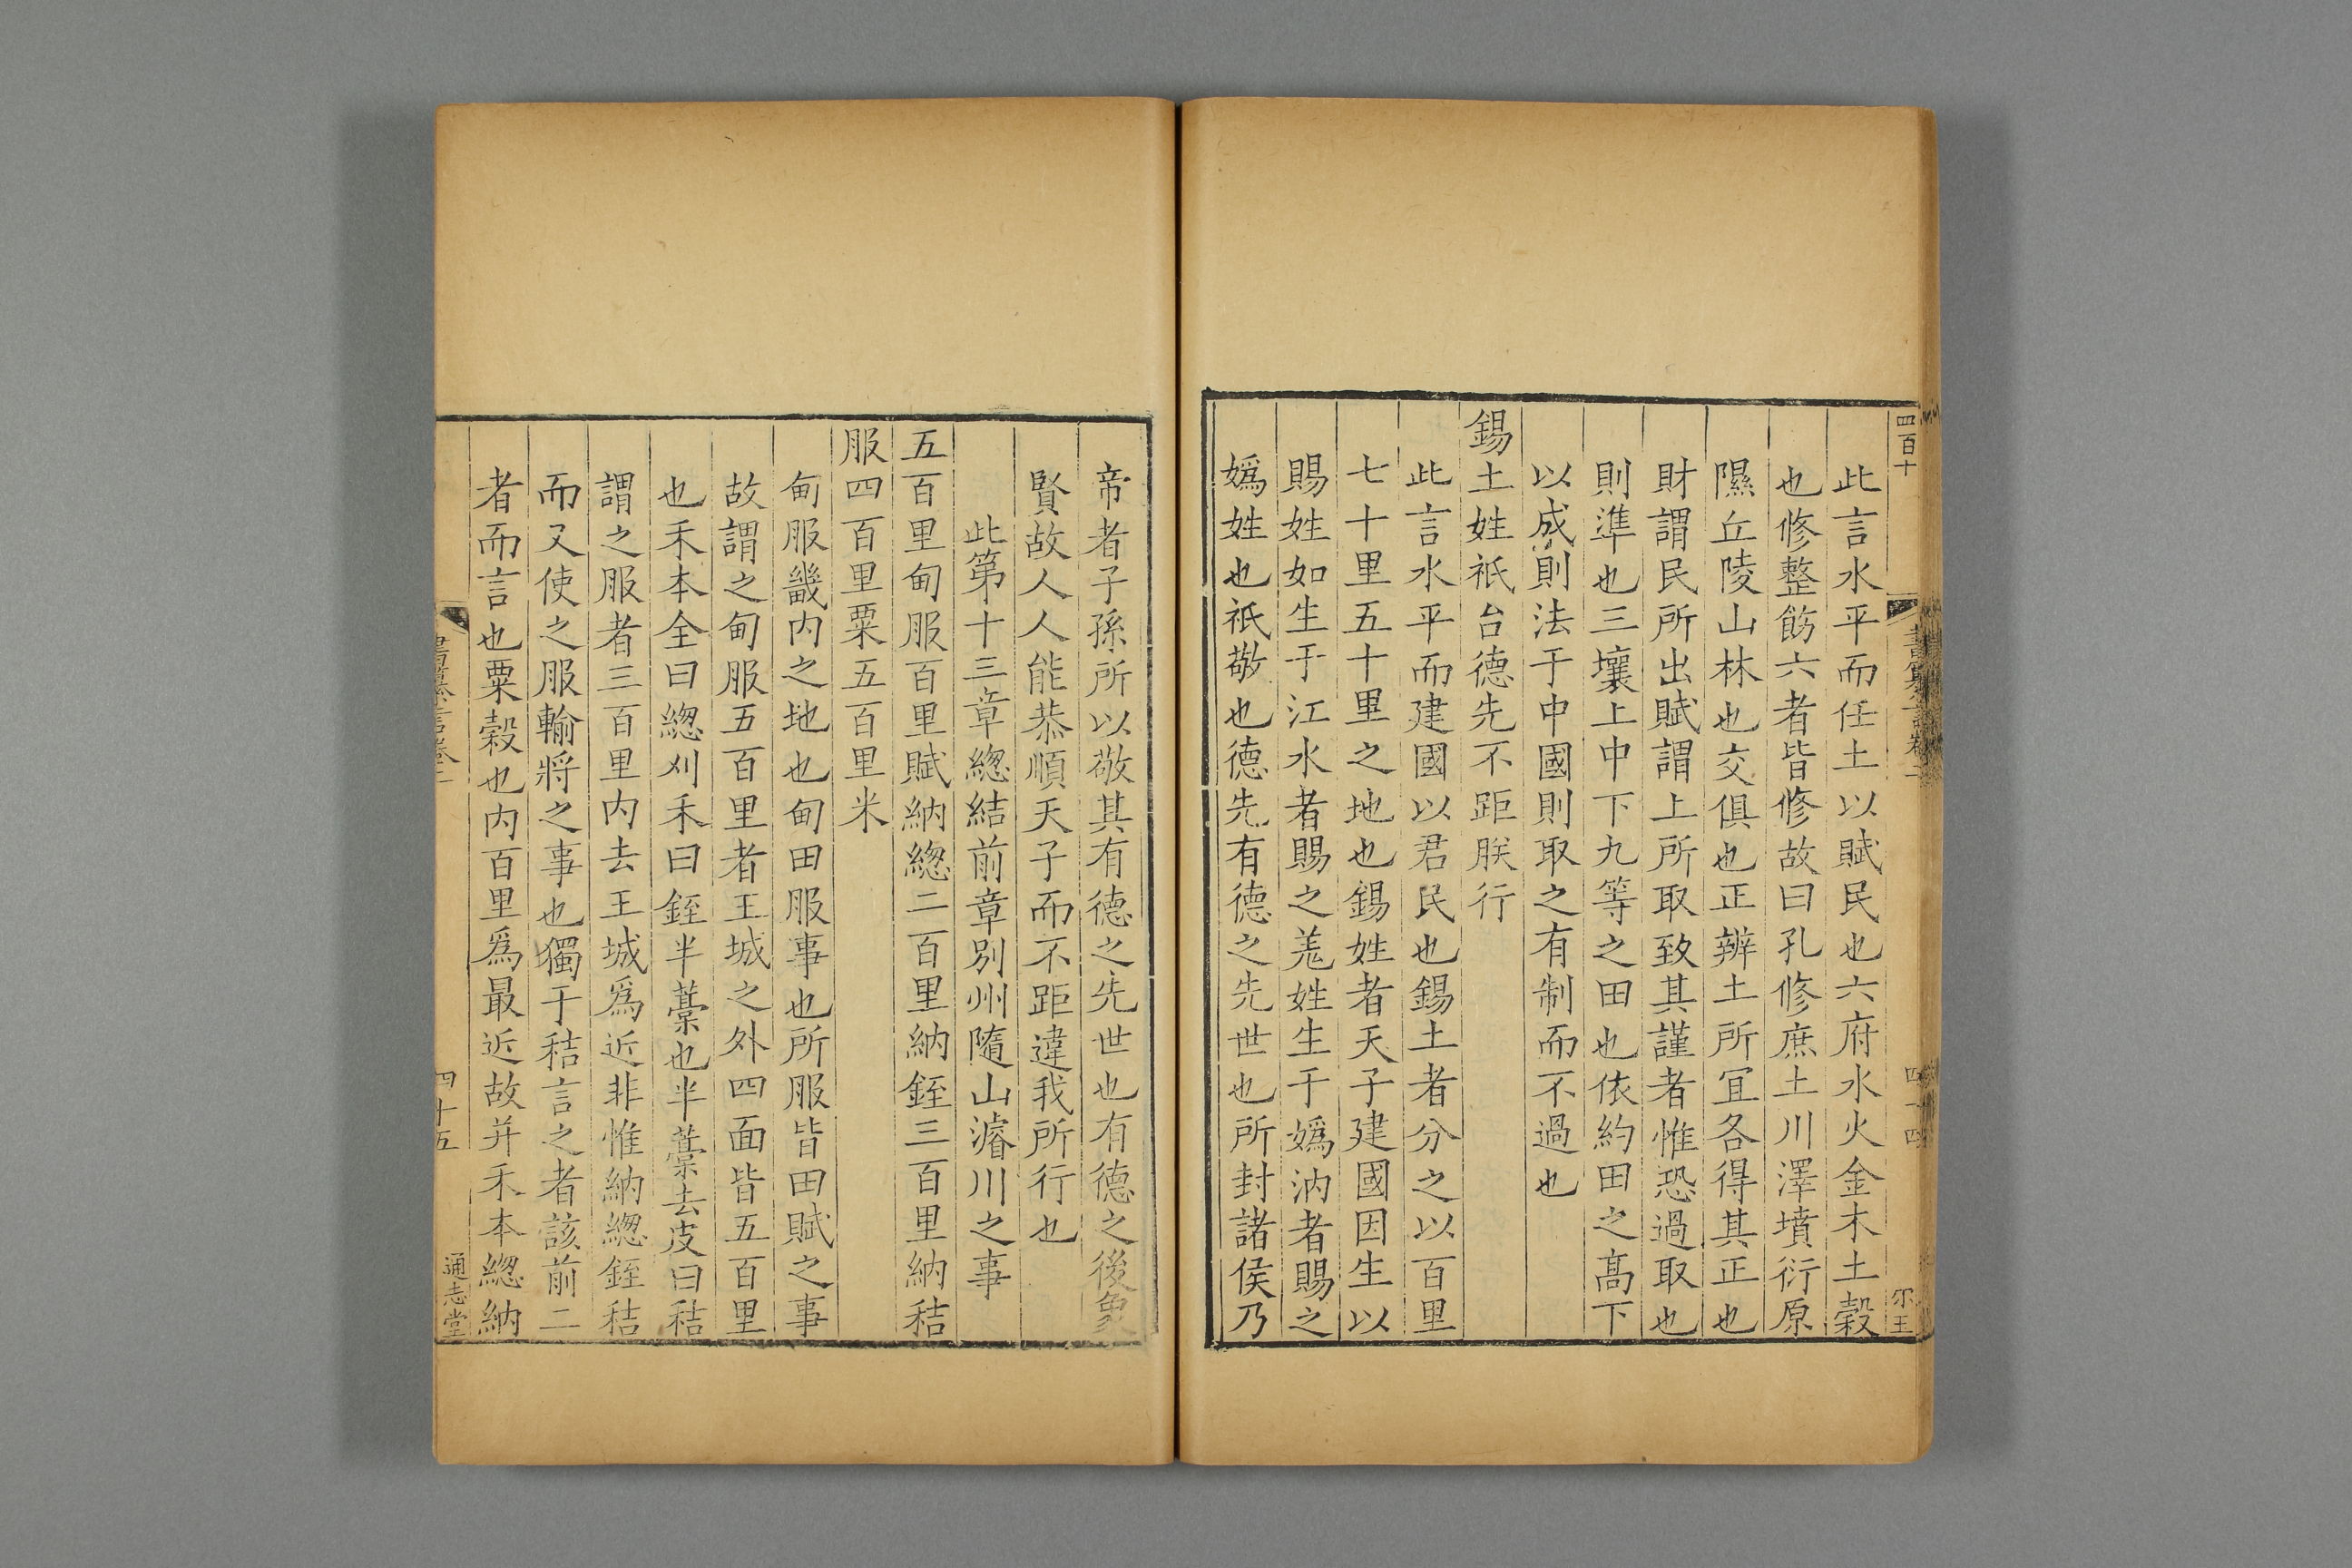 四百十
此言水平而任土以賦民也六府水火金木土穀
也修整飭六者皆修故曰孔修庶土川澤墳衍原
隰丘陵山林也交俱也正辨土所宜各得其正也
財謂民所出賦謂上所取致其謹者惟恐過取也
則準也三壤上中下九等之田也依約田之髙下
以成則法于中國則取之有制而不過也
錫土姓祇台德先不距朕行
此言水平而建國以君民也錫土者分之以百里
七十里五十里之地也錫姓者天子建國因生以
賜姓如生于江水者賜之羌姓生于嬀汭者賜之
嬀姓也祇敬也德先有德之先世也所封諸侯乃
帝者子孫所以敬其有德之先世也有德之後象
賢故人人能恭順天子而不距違我所行也
此第十三章緫結前章別州隨山濬川之事
五百里甸服百里賦納緫二百里納銍三百里納秸
服四百里粟五百里米
甸服畿内之地也甸田服事也所服皆田賦之事
故謂之甸服五百里者王城之外四面皆五百里
也禾本全曰緫刈禾曰銍半藁也半藁去皮曰秸
謂之服者三百里内去王城爲近非惟納緫銍秸
而又使之服輸將之事也獨于秸言之者該前二
者而言也粟穀也内百里爲最近故并禾本緫納
書纂言卷二
四十五
通志堂